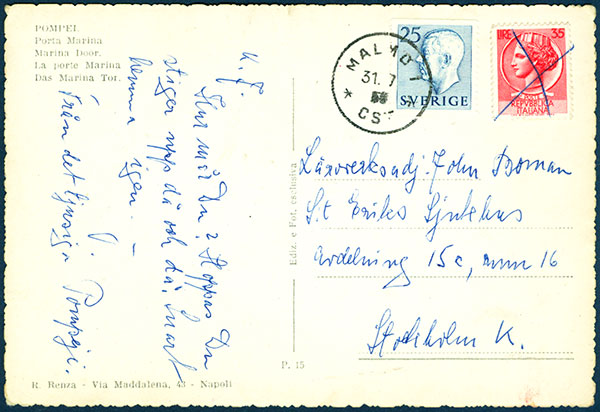 POMPEI.
Porta Marina
Marina Door.
La porte Marina
Das Marina Tor.
K. F.
Hur mår Du? Hoppas Du
stiger upp då och då. Snart
hemma igen. –
Från det ljusiga Pompeji.
R. Renza - Via Maddalena, 43 - Napoli
Ediz. e Fot. esclusiva
P. 15
25
SVERIGE
MALMÖ 1
31. 7
LIRE 35
REPVBBLICA
ITALIANA
Läroverksadj. John Broman
S:t Eriks Sjukhus
Avdelning 15c, rum 16
Stockholm K.